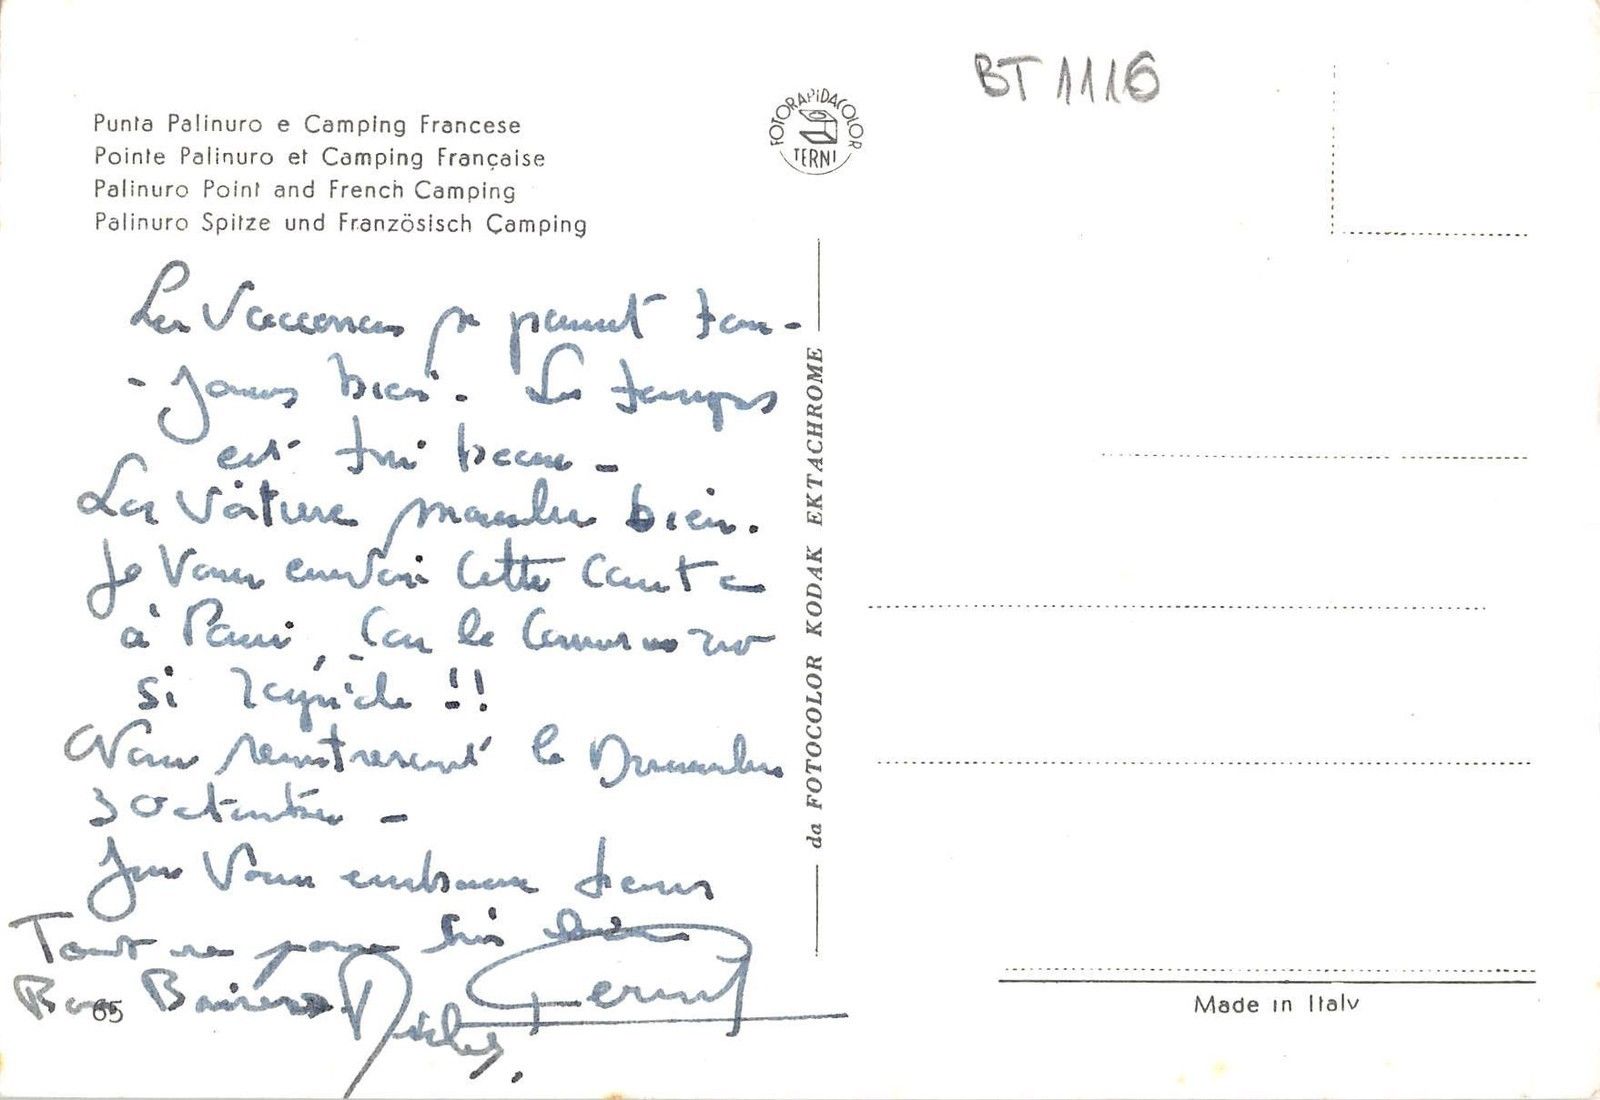 BT 1116
FOTORAPIDACOLOR
TERNI
Punta Palinuro e Camping Francese
Pointe Palinuro et Camping Française
Palinuro Point and French Camping
Palinuro Spitze und Französisch Camping
Les Vaccences se passent tou-
-jours bien. Le temps
est très beau -
La Voiture marche bien.
Je vous envoi cette carte
à Paris, car le courrier
si rapide !!
Nous rentrerons le Dimanche
3 Octobre -
Je vous embrasse tous
Tout se passe très bien
Bons Baisers
65
da FOTOCOLOR KODAK EKTACHROME
Made in Italy